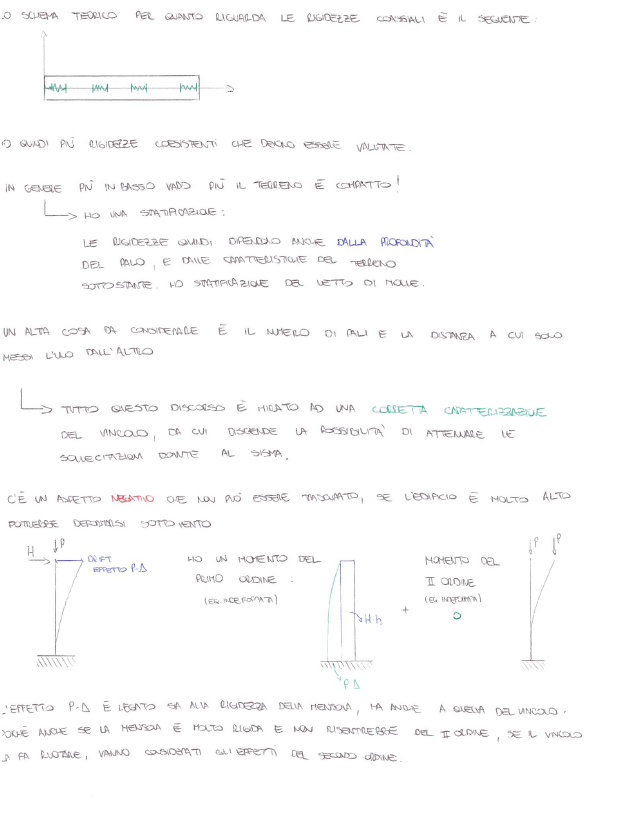 LO SCHEMA TEORICO PER QUANTO RIGUARDA LE RIGIDEZZE COASSIALI È IL SEGUENTE:
QUINDI PIÙ RIGIDEZZE COESISTENTI CHE DEVONO ESSERE VALUTATE.
IN GENERE PIÙ IN BASSO VADO PIÙ IL TERRENO È COMPATTO!
→ HO UNA STATIFICAZIONE:
LE RIGIDEZZE QUINDI DIPENDONO ANCHE DALLA PROFONDITÀ
DEL PALO, E DALLE CARATTERISTICHE DEL TERRENO
SOTTOSTANTE. HO STATIFICAZIONE DEL LETTO DI MOLLE.
UN ALTA COSA DA CONSIDERARE È IL NUMERO DI PALI E LA DISTANZA A CUI SONO
MESSI L'UNO DALL'ALTRO
→ TUTTO QUESTO DISCORSO È MIRATO AD UNA CORRETTA CARATTERIZZAZIONE
DEL VINCOLO, DA CUI DISCENDE LA POSSIBILITÀ DI ATTENUARE LE
SOLLECITAZIONI DOVUTE AL SISMA.
C'È UN ASPETTO NEGATIVO CHE NON PUÒ ESSERE TRASCURATO, SE L'EDIFICIO È MOLTO ALTO
POTREBBE DEFORMARSI SOTTO VENTO
H P
DRIFT
EFFETTO P-Δ
HO UN MOMENTO DEL
PRIMO ORDINE :
(EQ. INDEFORMATA)
H·h
P Δ
+
MOMENTO DEL
II ORDINE
(EQ. INDEFORMATA)
P P
L'EFFETTO P-Δ È LEGATO SIA ALLA RIGIDEZZA DELLA MENSOLA, MA ANCHE A QUELLA DEL VINCOLO.
POICHÈ ANCHE SE LA MENSOLA È MOLTO RIGIDA E NON RISENTIREBBE DEL II ORDINE, SE IL VINCOLO
LA FA RUOTARE, VANNO CONSIDERATI GLI EFFETTI DEL SECONDO ORDINE.